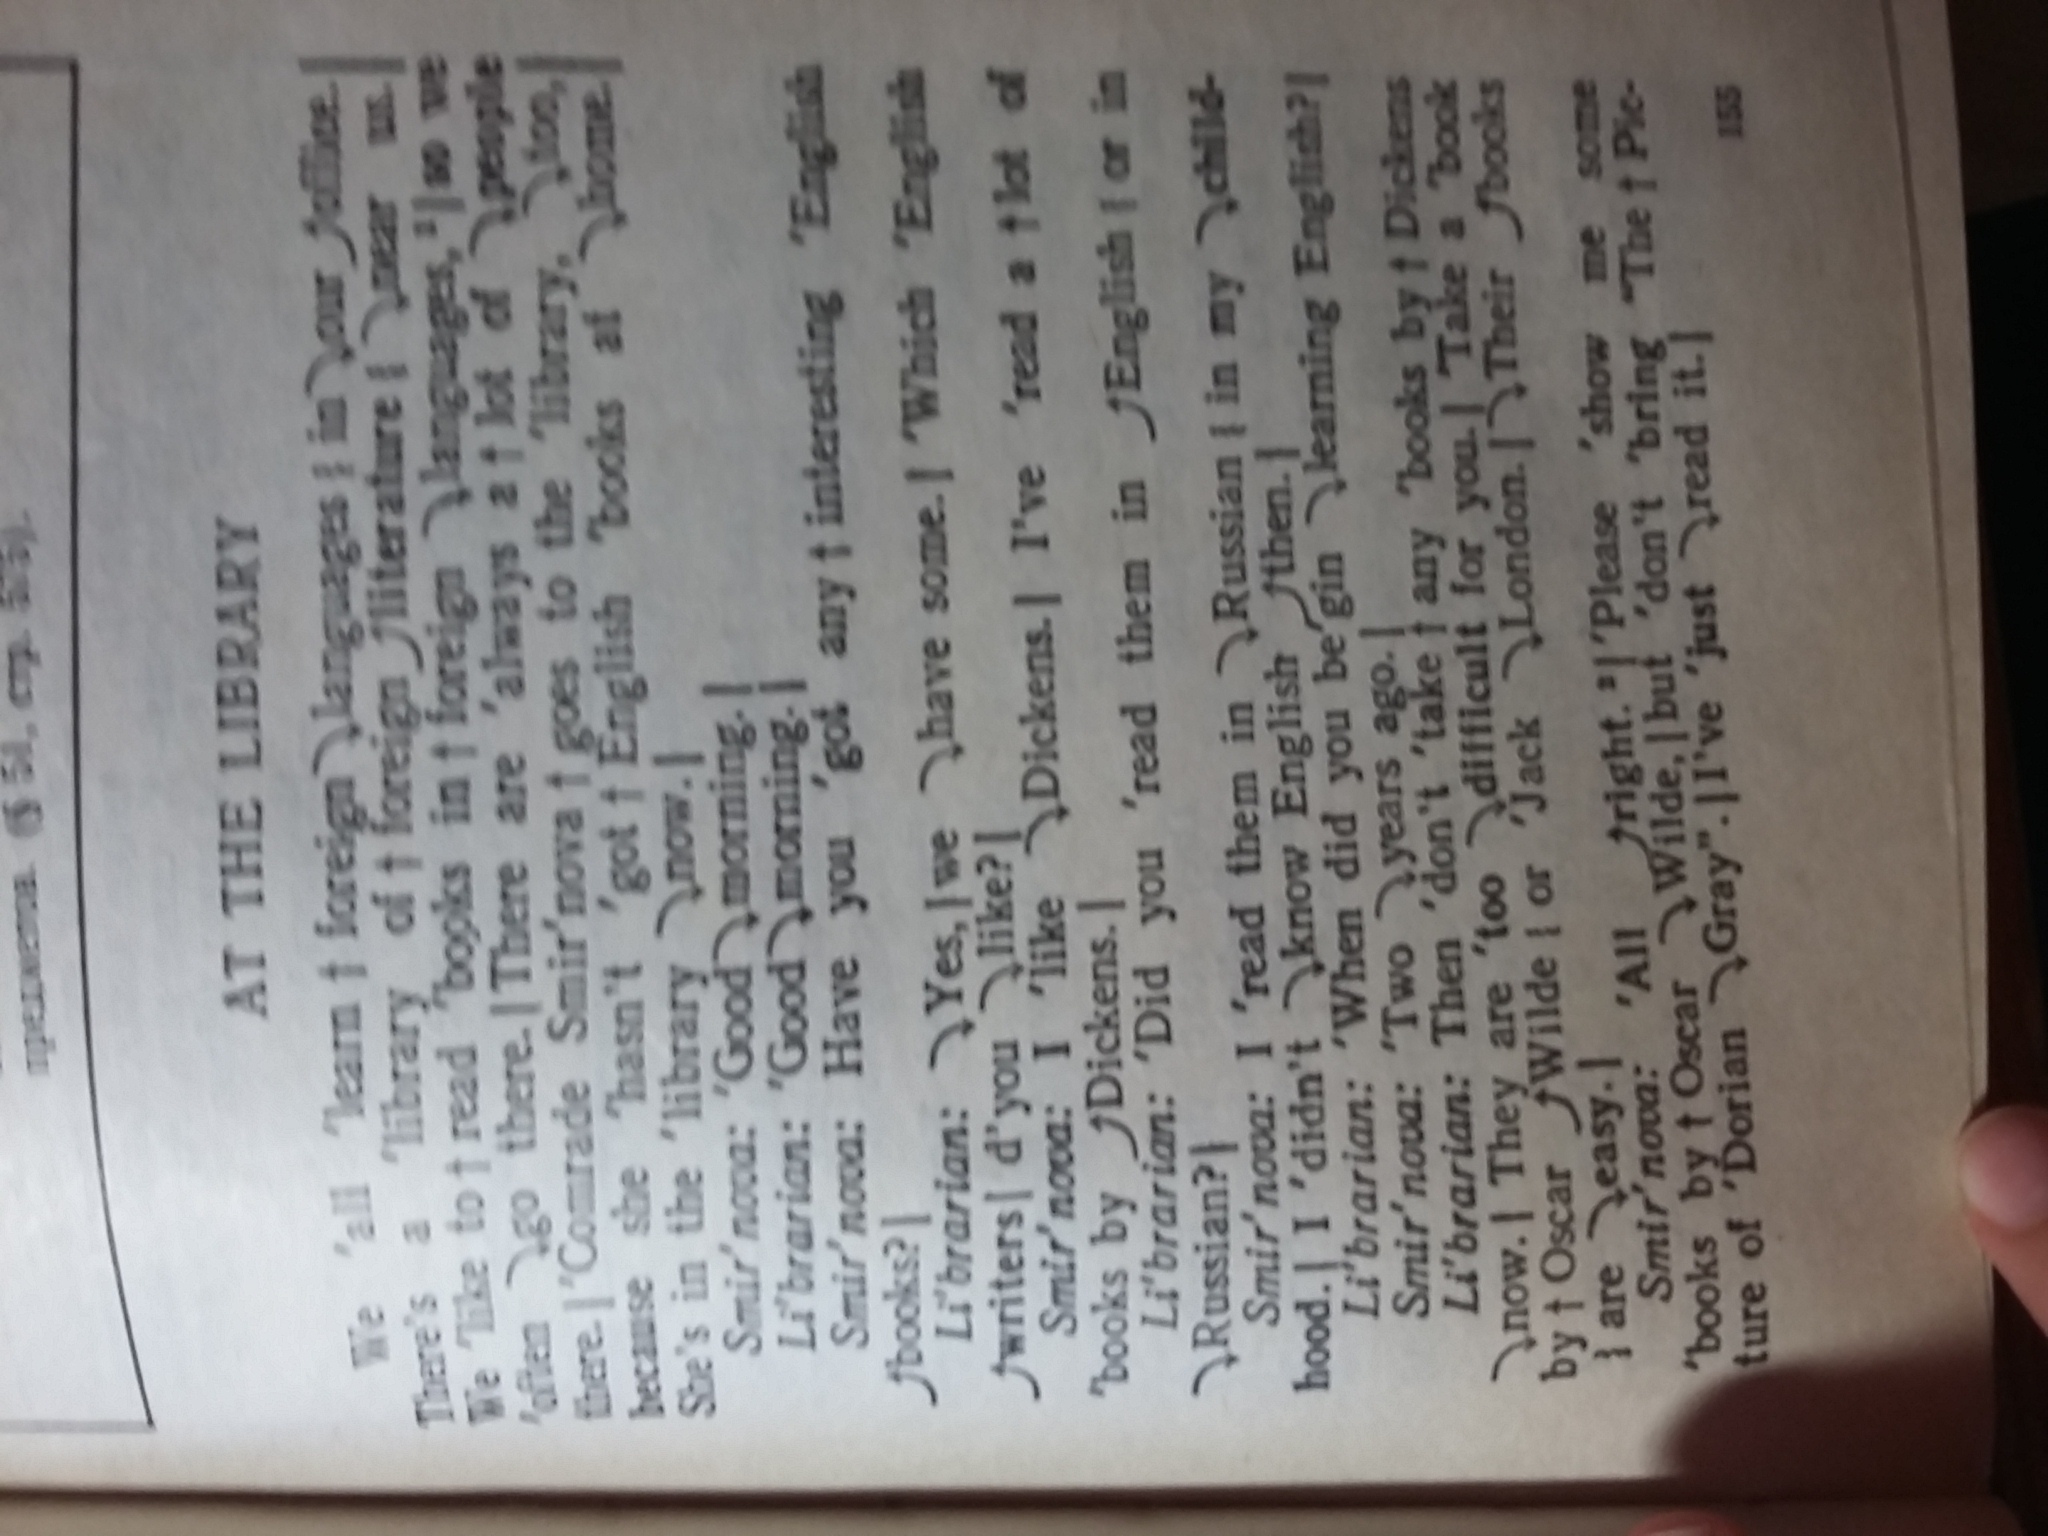 AT THE LIBRARY
We ˈall ˈlearn † foreign ↘languages ⌇ in ↘our ↗office. |
There's a ˈlibrary of † foreign ↗literature ⌇ ↘near us. |
We ˈlike to † read ˈbooks in † foreign ↘languages,¹ | so we
ˈoften ↘go there. | There are ˈalways a † lot of ↘people
there. | ˈComrade Smirˈnova † goes to the ˈlibrary, ↘too, |
because she ˈhasn't ˈgot † English ˈbooks at ↘home. |
She's in the ˈlibrary ↘now. |
Smirˈnova: ˈGood ↘morning. |
Liˈbrarian: ˈGood ↘morning. |
Smirˈnova: Have you ˈgot any † interesting ˈEnglish
↗books? |
Liˈbrarian: ↘Yes, | we ↘have some. | ˈWhich ˈEnglish
↗writers | d'you ↘like? |
Smirˈnova: I ˈlike ↘Dickens. | I've ˈread a † lot of
ˈbooks by ↗Dickens. |
Liˈbrarian: ˈDid you ˈread them in ↗English ⌇ or in
↘Russian? |
Smirˈnova: I ˈread them in ↘Russian ⌇ in my ↘child-
hood. | I ˈdidn't ↘know English ↗then. |
Liˈbrarian: ˈWhen did you beˈgin ↘learning English? |
Smirˈnova: ˈTwo ↘years ago. |
Liˈbrarian: Then ˈdon't ˈtake † any ˈbooks by † Dickens
↘now. | They are ˈtoo ↘difficult for you. | ˈTake a ˈbook
by † Oscar ↗Wilde ⌇ or ˈJack ↘London. | ↘Their ↗books
⌇ are ↘easy. |
Smirˈnova: ˈAll ↗right.² | ˈPlease ˈshow me some
ˈbooks by † Oscar ↘Wilde, | but ˈdon't ˈbring "The † Pic-
ture of ˈDorian ↘Gray". | I've ˈjust ↘read it. |
155